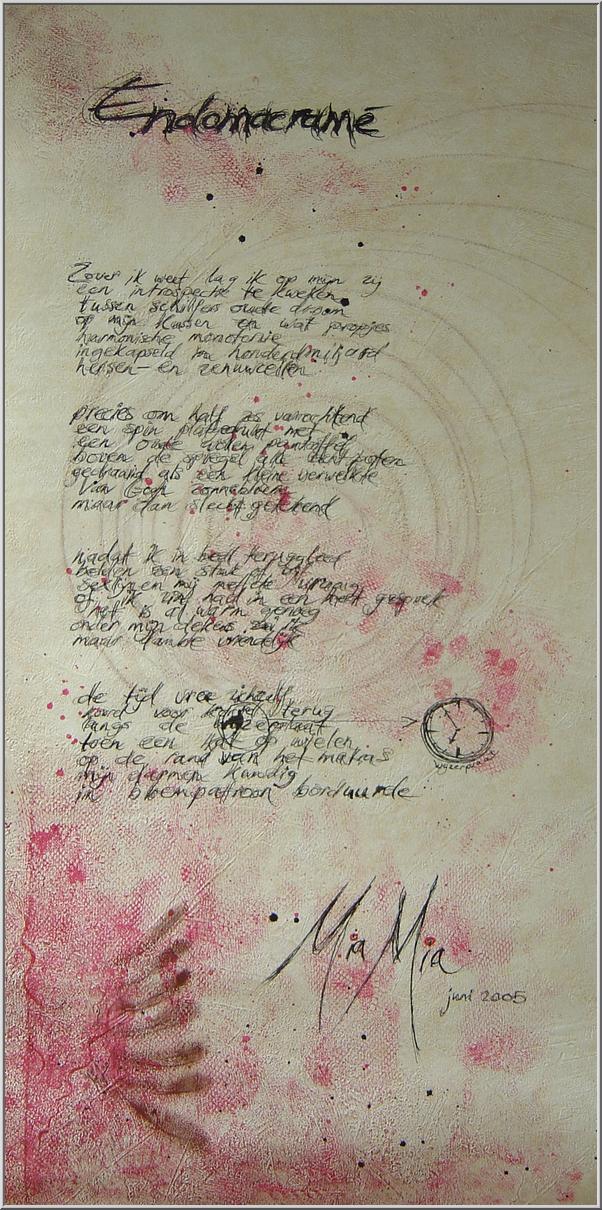 Endomacramé
Zover ik weet lag ik op mijn zij
een introspectie te kweken
tussen schilfers oude droom
op mijn kussen en wat propjes
harmonische monotonie
ingekapseld in honderdmiljard
hersen- en zenuwcellen
precies om half zes vermorzelend
een spin platgedrukt met
een oude pantoffel
boven de spiegel alle poten
gedraaid als een kleine verwelkte
Van Gogh zonnebloem
maar dan slecht getekend
nadat ik in bed teruggleed
belden een stuk of
sexlijnen mij met de vraag
of ik zin had in een heet gesprek
't is al warm genoeg
onder mijn dekens zei ik
maar dankte vriendelijk
de tijd vrat zichzelf
voor terug
langs de wijzerplaat
toen een kat op wielen
op de rand van het matras
mijn darmen kundig
in bloempatroon borduurde
wijzerplaat
Mia Mia
juni 2005